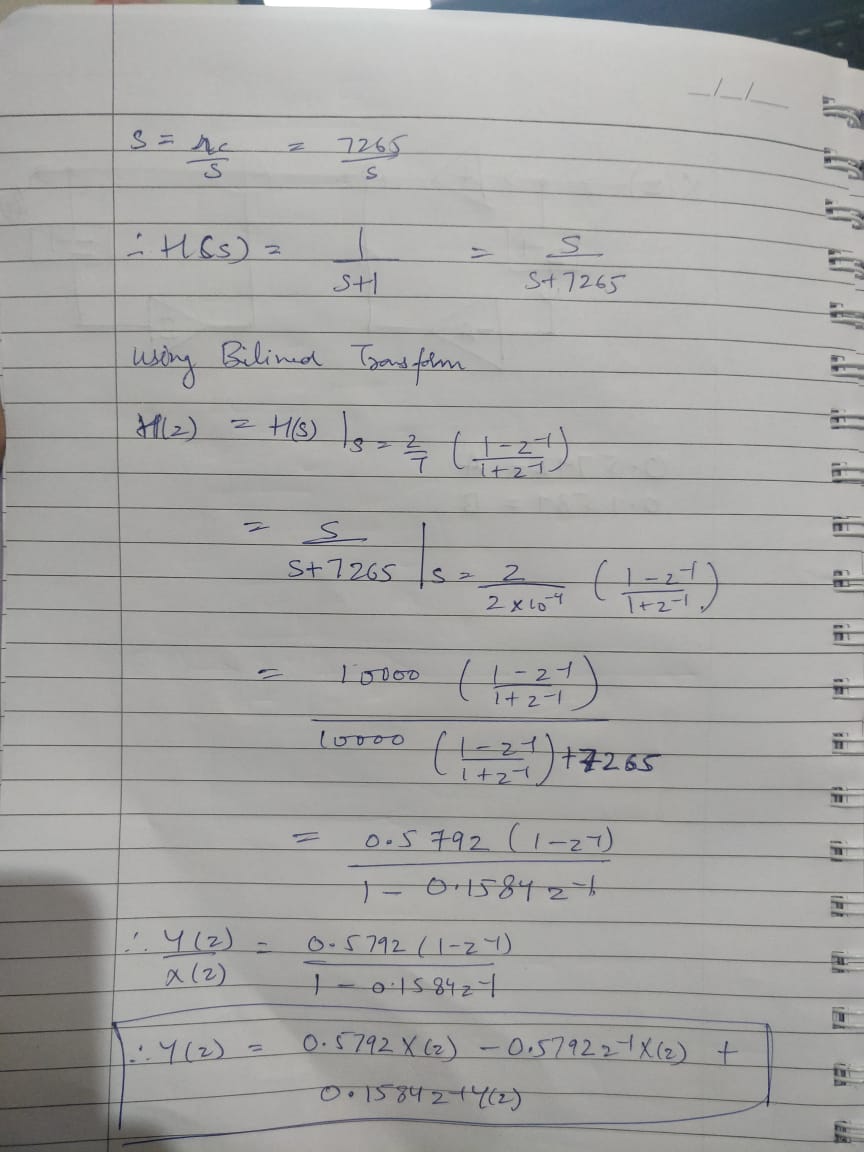 S = Ωc/S = 7265/S
∴ H(s) = 1/(S+1) = S/(S+7265)
using Bilinead Transform
H(z) = H(s) |s = 2/T ((1-z⁻¹)/(1+z⁻¹))
= S/(S+7265) |s = 2/(2×10⁻⁴) ((1-z⁻¹)/(1+z⁻¹))
= 10000 ((1-z⁻¹)/(1+z⁻¹))
10000 ((1-z⁻¹)/(1+z⁻¹)) + 7265
= 0.5792 (1-z⁻¹)
1 - 0.1584 z⁻¹
∴ Y(z)/X(z) = 0.5792 (1-z⁻¹)/(1 - 0.1584z⁻¹)
∴ Y(z) = 0.5792 X(z) - 0.5792 z⁻¹X(z) +
0.1584 z⁻¹Y(z)